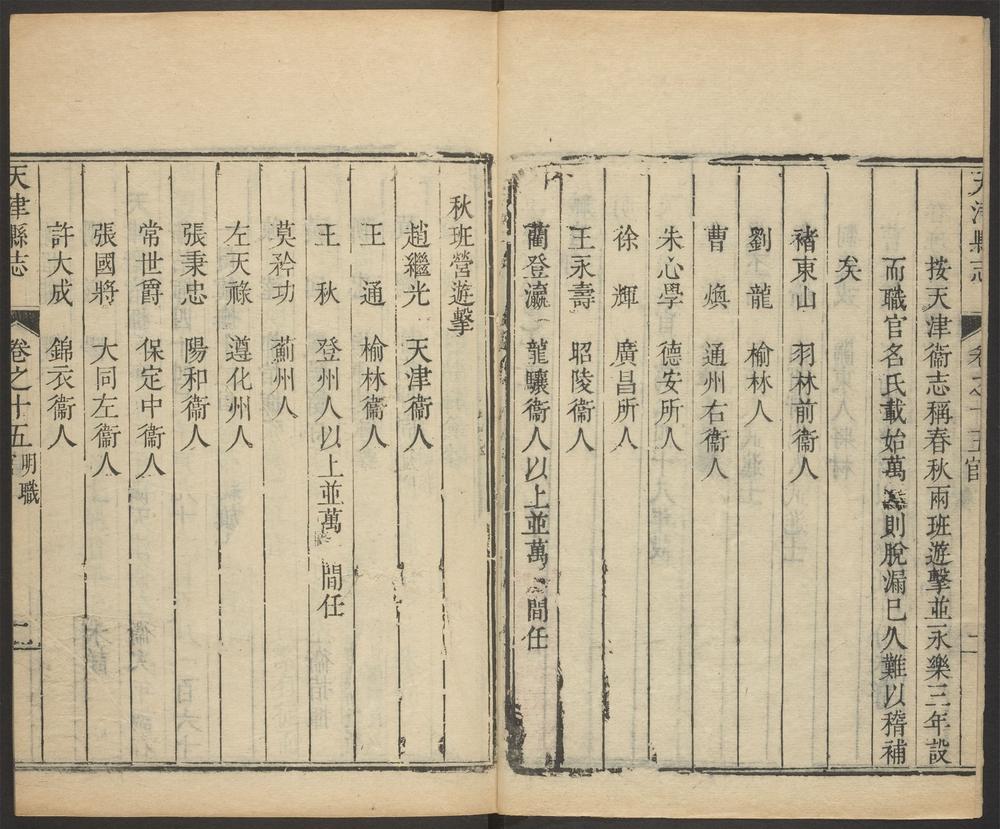 天津縣志
卷之十五官
二
按天津衞志稱春秋兩班遊擊並永樂三年設
而職官名氏載始萬則脫漏已久難以稽補
矣
褚東山 羽林前衞人
劉龍 榆林人
曹煥 通州右衞人
朱心學 德安所人
徐輝 廣昌所人
王永壽 昭陵衞人
藺登瀛 龍驤衞人以上並萬間任
秋班營遊擊
趙繼光 天津衞人
王通 榆林衞人
王秋 登州人以上並萬間任
莫矜功 薊州人
左天祿 遵化州人
張秉忠 陽和衞人
常世爵 保定中衞人
張國將 大同左衞人
許大成 錦衣衞人
天津縣志
卷之十五明職
二